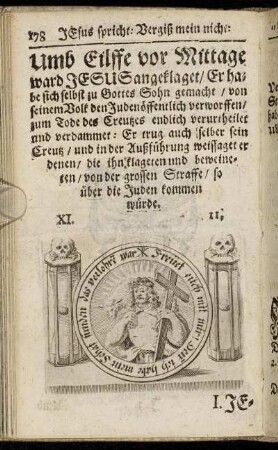 178 JEsus spricht: Vergiß mein nicht:
Umb Eilffe vor Mittage
ward JESUS angeklaget/ Er ha-
be sich selbst zu Gottes Sohn gemacht / von
seinem Volk den Juden öffentlich verworffen/
zum Tode des Creutzes endlich verurtheilet
und verdammet: Er trug auch selber sein
Creutz / und in der Außführung weissaget er
denen/ die ihn klageten und beweine-
ten / von der grossen Straffe/ so
über die Juden kommen
würde.
XI. 11;
Freuet euch mit mir: Denn ich habe mein Schaf funden das verlohrn war
I. JE-